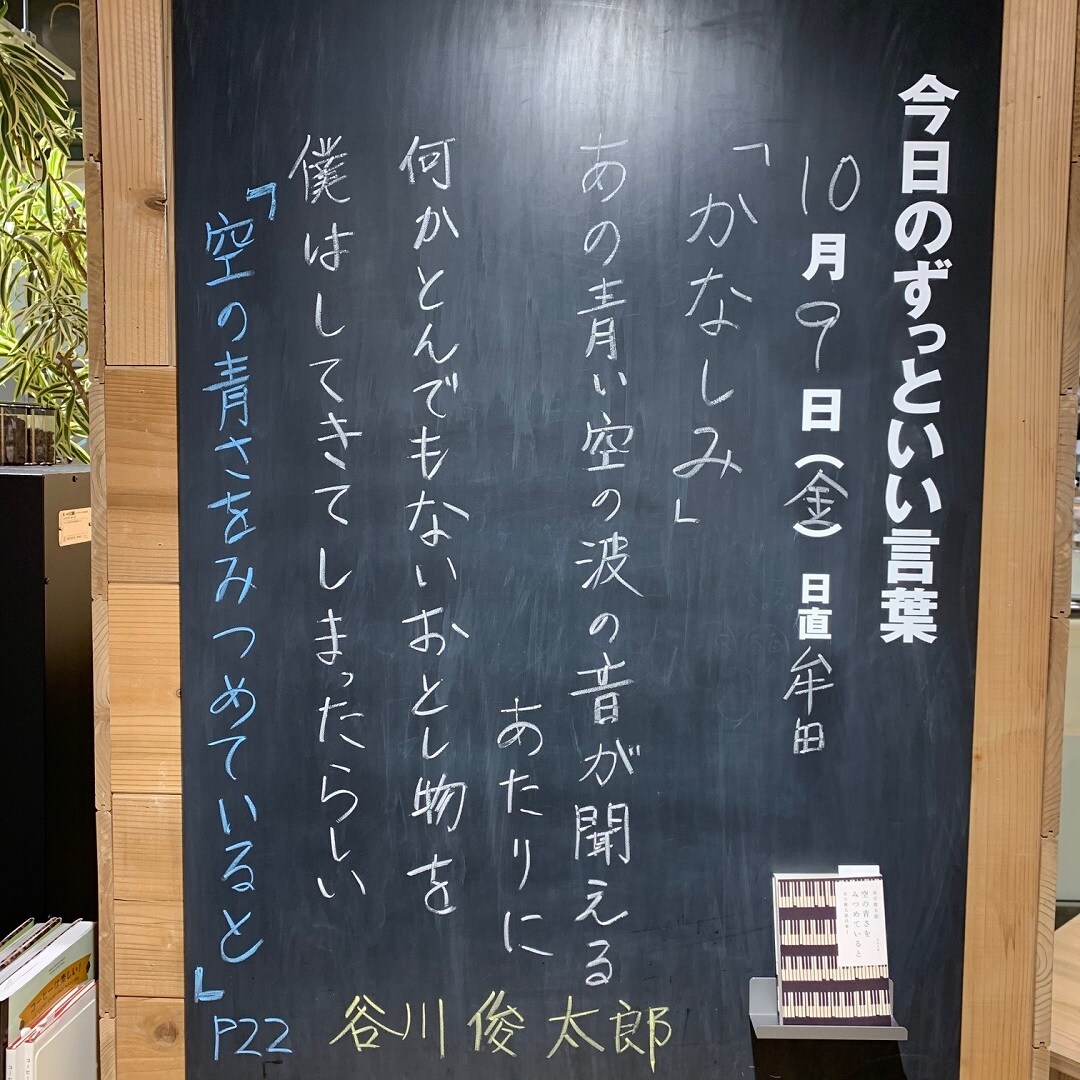 今日のずっといい言葉
10月9日(金) 日直 牟田
「かなしみ」
あの青い空の波の音が聞える
あたりに
何かとんでもないおとし物を
僕はしてきてしまったらしい
「空の青さをみつめていると」
P22
谷川俊太郎
空の青さを
みつめていると